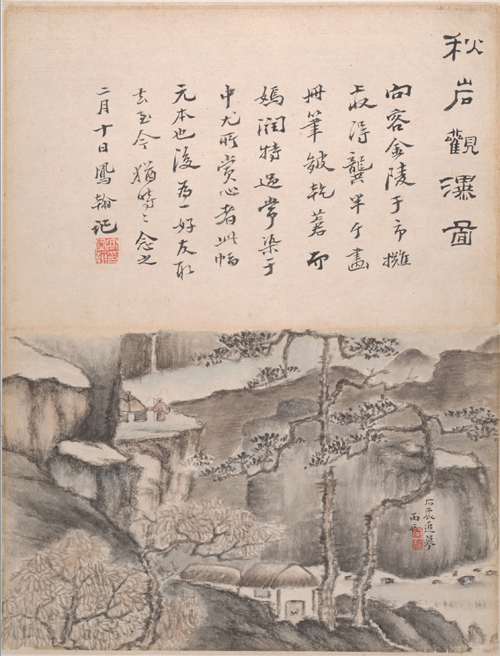 秋岩觀瀑圖
向客金陵于市攤
上收得龔半千畫
冊筆皴乾蒼而
嫣潤特過常染于
中尤所賞心者此幅
元本也後為一好友取
去至今猶時〻念之
二月十日鳳翰記
追摹